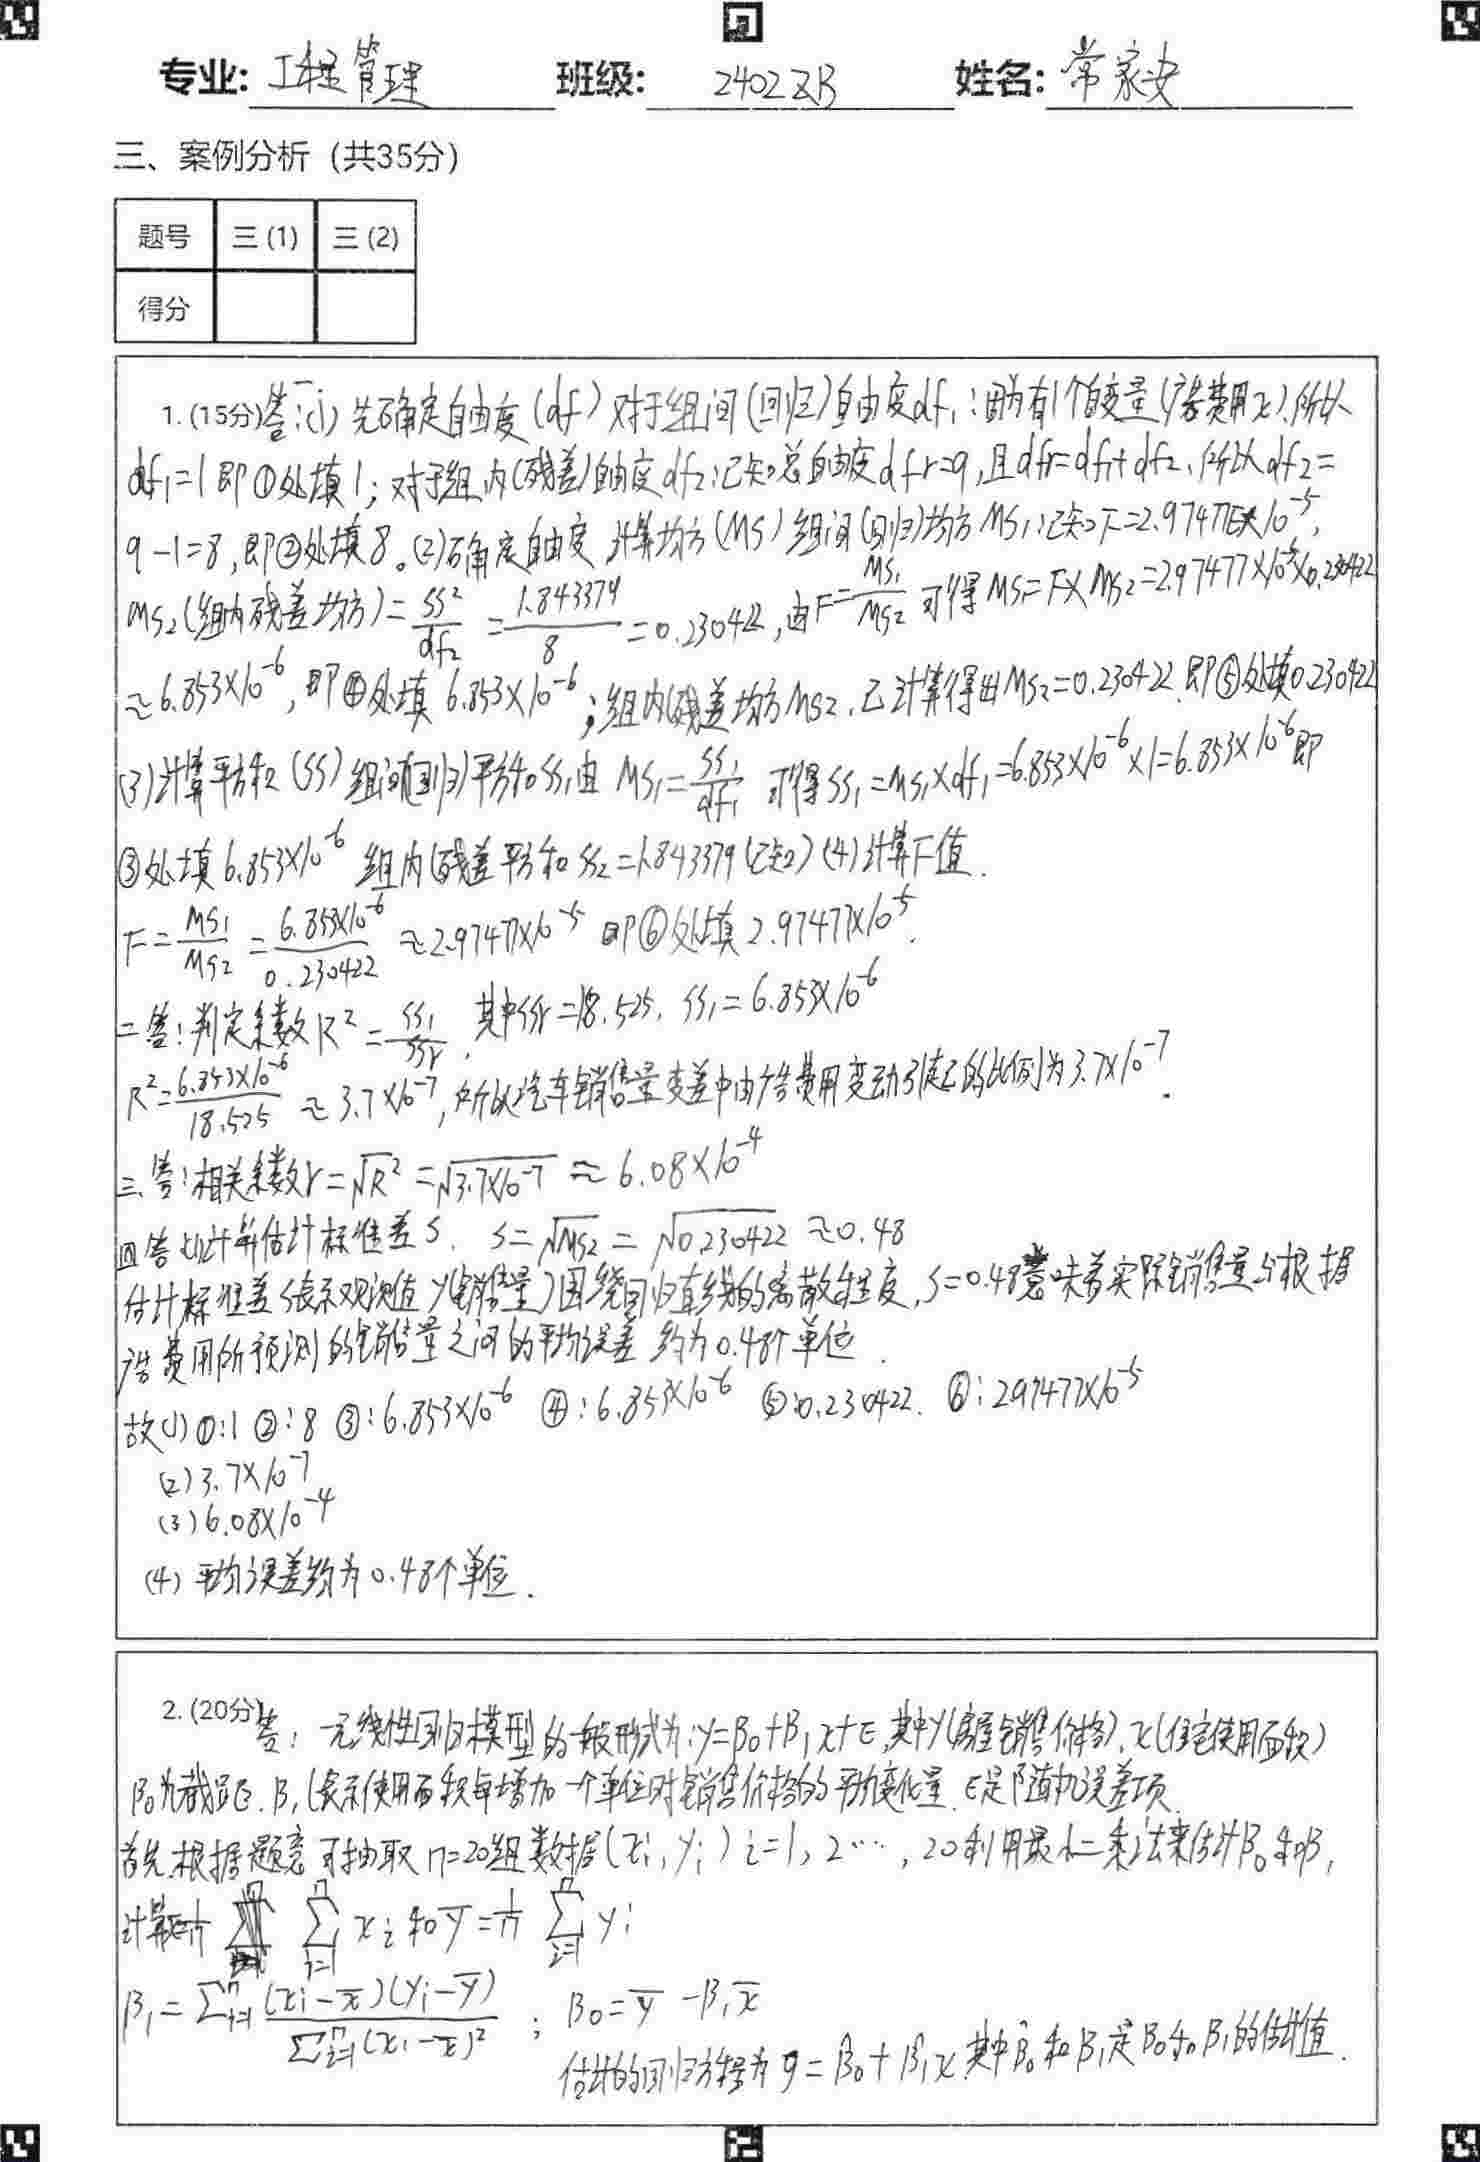 专业: 工程管理 班级: 2402ZB 姓名: 常家安
三、案例分析（共35分）
题号 三(1) 三(2)
得分
1.(15分)答:一(1) 先确定自由度(df) 对于组间(回归)自由度df₁:因为有1个自变量(广告费用x),所以
df₁=1 即①处填1; 对于组内(残差)自由度df₂:已知总自由度dfr=9,且dfr=df₁+df₂,所以df₂=
9-1=8,即②处填8。(2)确定自由度 计算均方(MS) 组间(回归)均方MS₁:已知F=2.97477×10⁻⁵,
MS₂(组内残差均方)=SS²/df₂=1.843379/8=0.230422,由F=MS₁/MS₂可得MS₁=F×MS₂=2.97477×10⁻⁵×0.230422
≈6.853×10⁻⁶,即④处填6.853×10⁻⁶;组内(残差均方MS₂,已计算得出MS₂=0.230422.即⑤处填0.230422
(3)计算平方和(SS)组间(回归)平方和SS₁由MS₁=SS₁/df₁ 可得SS₁=MS₁×df₁=6.853×10⁻⁶×1=6.853×10⁻⁶即
③处填6.853×10⁻⁶ 组内(残差平方和SS₂=1.843379(已知) (4)计算F值.
F=MS₁/MS₂=6.853×10⁻⁶/0.230422≈2.97477×10⁻⁵ 即⑥处填2.97477×10⁻⁵.
二答:判定系数R²=SS₁/SSr,其中SSr=18.525, SS₁=6.853×10⁻⁶
R²=6.853×10⁻⁶/18.525≈3.7×10⁻⁷,所以汽车销售量变差中由广告费用变动引起的比例为3.7×10⁻⁷.
三、答:相关系数r=√R²=√3.7×10⁻⁷≈6.08×10⁻⁴
四答:计算估计标准差S. S=√MS₂=√0.230422≈0.48
估计标准差S表示观测值y(销售量)围绕回归直线的离散程度,S=0.48意味着实际销售量与根据
广告费用所预测的销售量之间的平均误差约为0.48个单位.
故(1)①:1 ②:8 ③:6.853×10⁻⁶ ④:6.853×10⁻⁶ ⑤:0.230422. ⑥:2.97477×10⁻⁵
(2)3.7×10⁻⁷
(3)6.08×10⁻⁴
(4)平均误差约为0.48个单位.
2.(20分)答:一元线性回归模型的一般形式为:y=β₀+β₁x+ε,其中y(房屋销售价格),x(住宅使用面积)
β₀为截距.β₁(表示使用面积每增加一个单位时销售价格的平均变化量.ε是随机误差项.
首先.根据题意可抽取n=20组数据(xᵢ,yᵢ) i=1,2…,20利用最小二乘法来估计β₀和β₁
计算x̄=1/n ∑ⁿᵢ₌₁ xᵢ和ȳ=1/n ∑ⁿᵢ₌₁ yᵢ
β₁=∑ⁿᵢ₌₁(xᵢ-x̄)(yᵢ-ȳ)/∑ⁿᵢ₌₁(xᵢ-x̄)² ; β₀=ȳ-β₁x̄
估计的回归方程为ŷ=β̂₀+β̂₁x其中β̂₀和β̂₁是β₀和β₁的估计值.